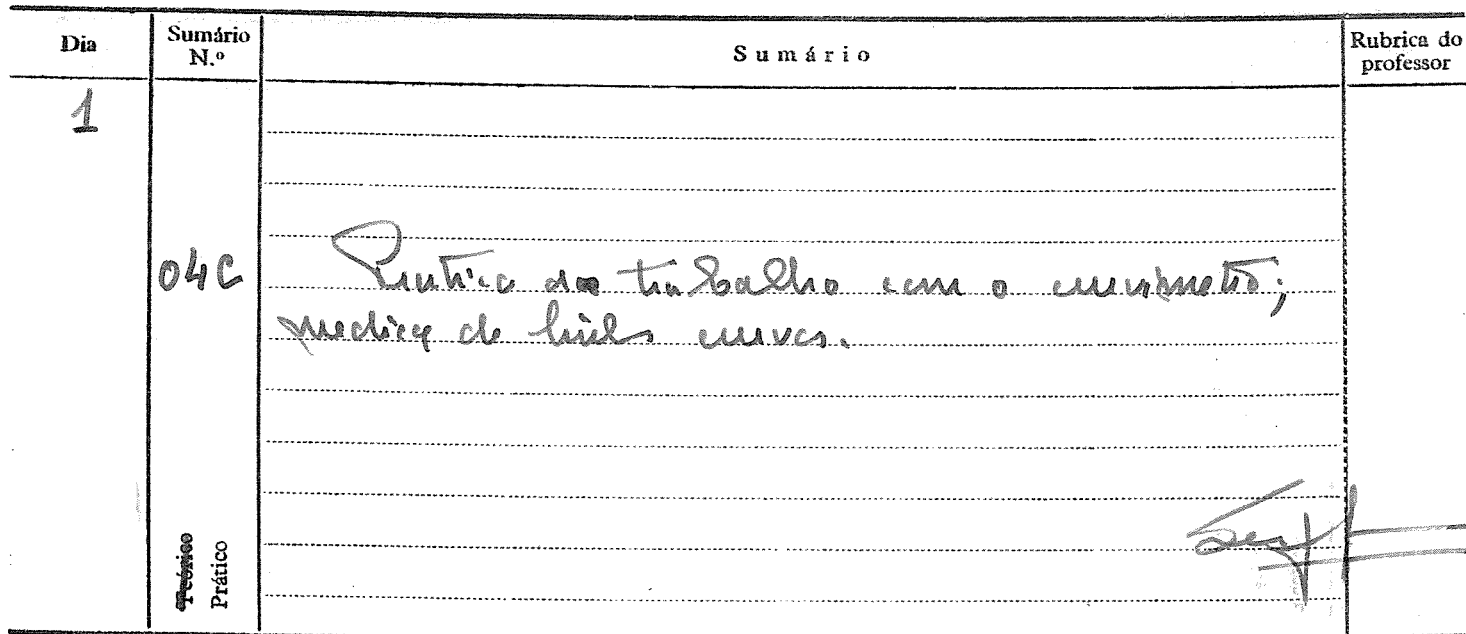 Dia
Sumário N.º
Sumário
Rubrica do professor
1
04C
do trabalho com o curvímetro;
de curvas.
Teórico
Prático